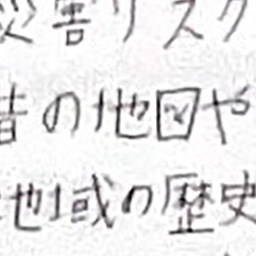 災害リスク
昔の地図や
地域の歴史